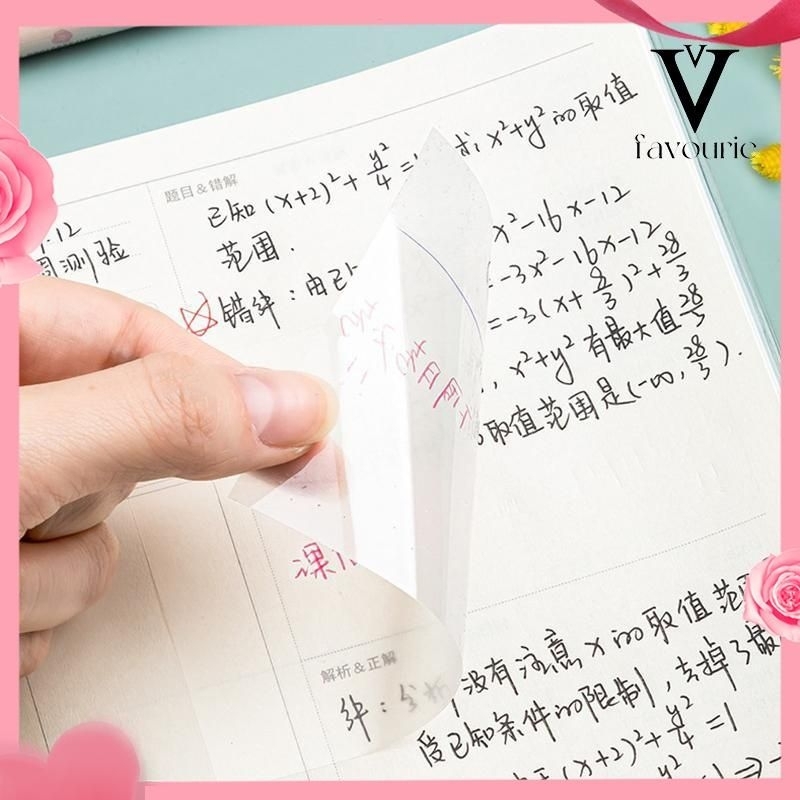 V
favourie
题目&错解
已知 (x+2)²+y²/4=1 求 x²+y² 的取值
范围.
1.12
周测验
错解：由已
x²-16x-12
=-3x²-16x-12
=-3(x+8/3)²+28/3
x²+y² 有最大值28/3
取值范围是(-∞,28/3).
课
解析&正解
解：分析
没有注意 x 的取值范
受已知条件的限制，去掉了最
(x+2)²+y²/4=1